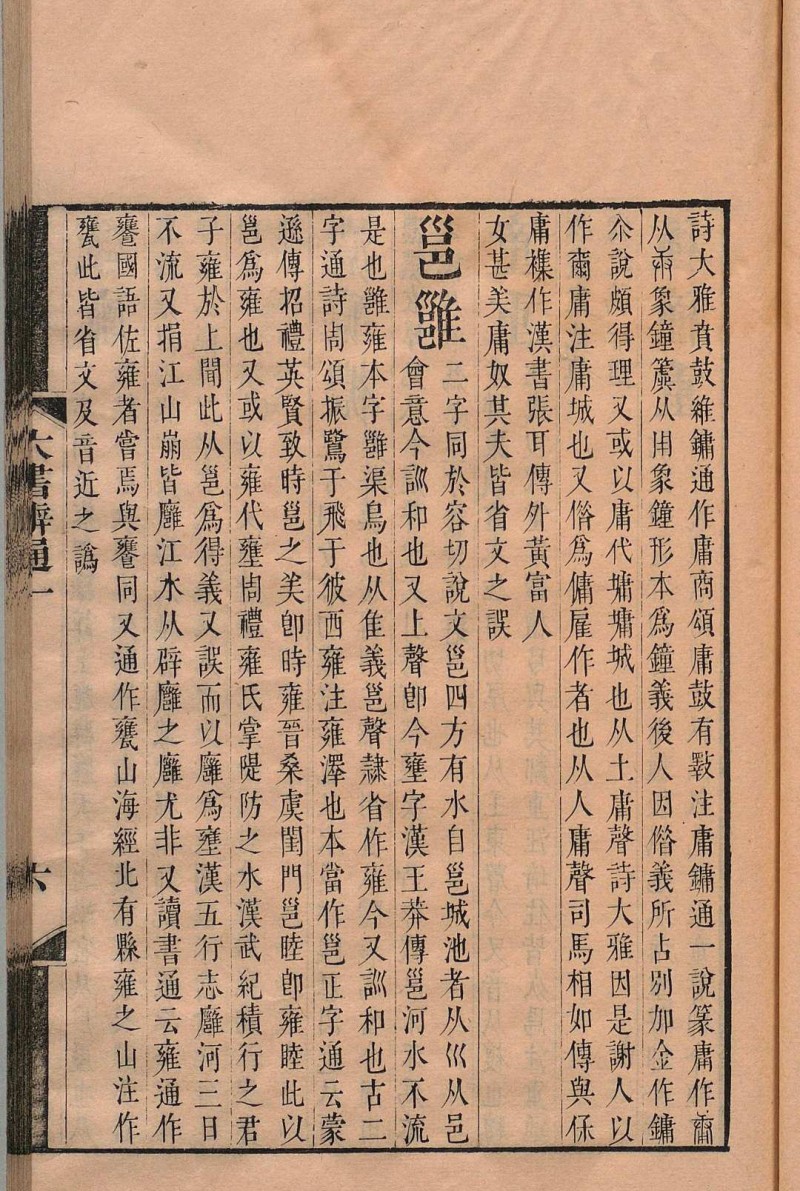 詩大雅賁鼓維鏞通作庸商頌庸鼓有斁注庸鏞通一說篆庸作𤰃
从𤰃象鐘簴从用象鐘形本爲鐘義後人因俗義所占别加金作鏞
尒說頗得理又或以庸代墉墉城也从土庸聲詩大雅因是謝人以
作爾庸注庸城也又俗爲傭雇作者也从人庸聲司馬相如傳與保
庸襍作漢書張耳傳外黃富人
女甚美庸奴其夫皆省文之誤
邕雝
二字同於容切說文邕四方有水自邕城池者从巛从邑
會意今訓和也又上聲卽今壅字漢王莽傳邕河水不流
是也雝雍本字雝渠鳥也从隹義邕聲隸省作雍今又訓和也古二
字通詩周頌振鷺于飛于彼西雍注雍澤也本當作邕正字通云蒙
遜傳招禮英賢致時邕之美卽時雍晉桑虞閨門邕睦卽雍睦此以
邕爲雍也又或以雍代壅周禮雍氏掌隄防之水漢武紀積行之君
子雍於上聞此从邕爲得義又誤而以廱爲壅漢五行志廱河三日
不流又捐江山崩皆廱江水从辟廱之廱尤非又讀書通云雍通作
饔國語佐雍者嘗焉與饔同又通作甕山海經北有縣雍之山注作
甕此皆省文及音近之譌
六書辨通一
六